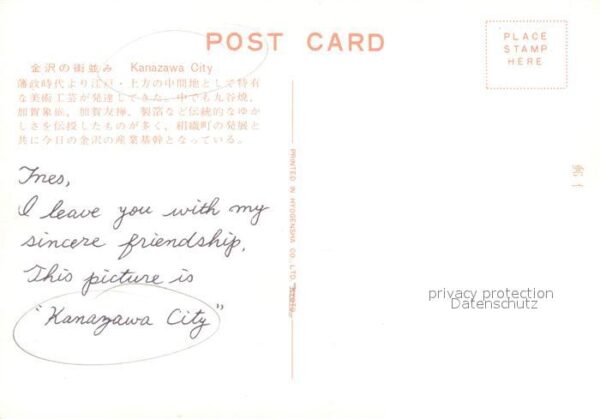 POST CARD
PLACE
STAMP
HERE
金沢の街並み Kanazawa City
藩政時代より江戸・上方の中間地として特有
な美術工芸が発達してきた。中でも九谷焼、
加賀象嵌、加賀友禅、製箔など伝統的なゆか
しさを伝授したものが多く、絹織町の発展と
共に今日の金沢の産業基幹となっている。
Ines,
I leave you with my
sincere friendship.
This picture is
"Kanazawa City"
PRINTED IN HYOGENSHA CO., LTD
privacy protection
Datenschutz